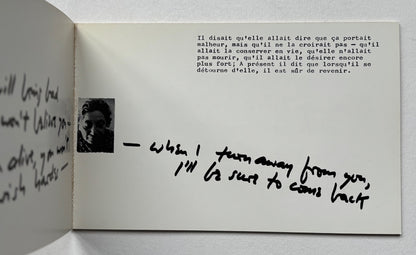 ill bring bad
won't believe you —
alive, you won't
wish harder —
Il disait qu'elle allait dire que ça portait
malheur, mais qu'il ne la croirait pas — qu'il
allait la conserver en vie, qu'elle n'allait
pas mourir, qu'il allait le désirer encore
plus fort; A présent il dit que lorsqu'il se
détourne d'elle, il est sûr de revenir.
— when I turn away from you,
I'll be sure to come back